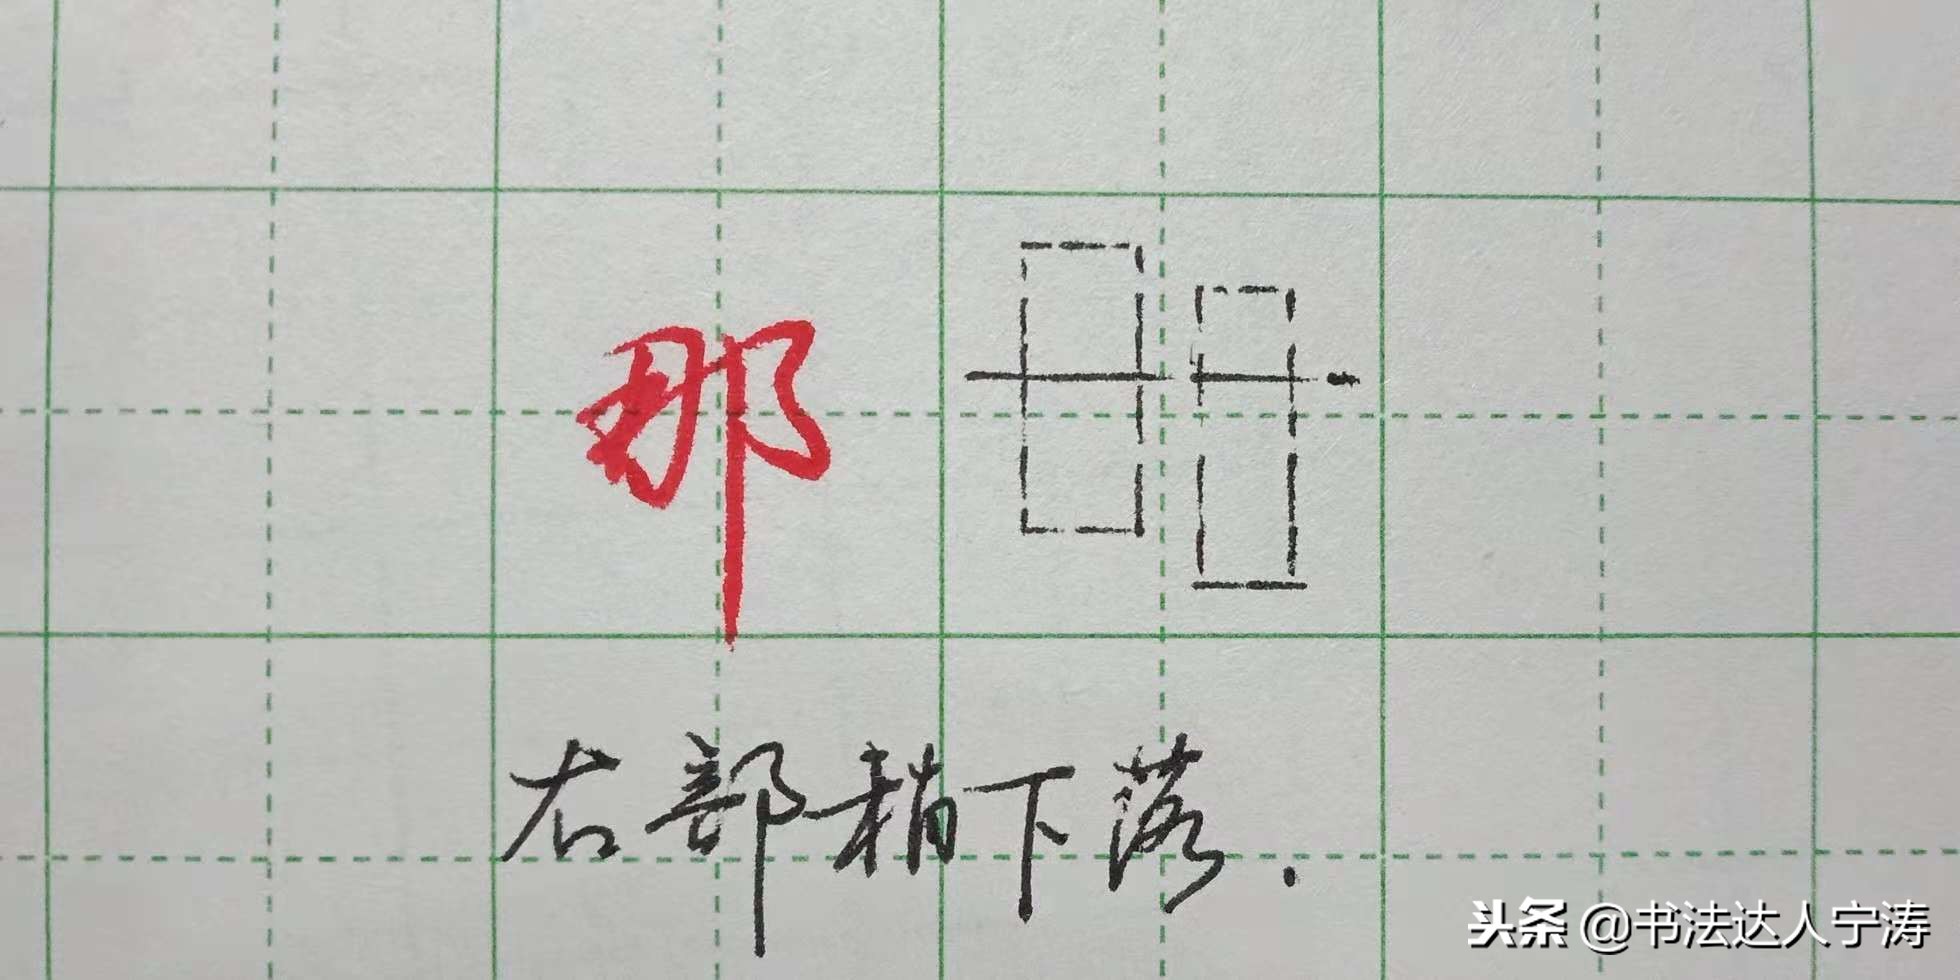 那
右部稍下落.
头条 @书法达人宁涛